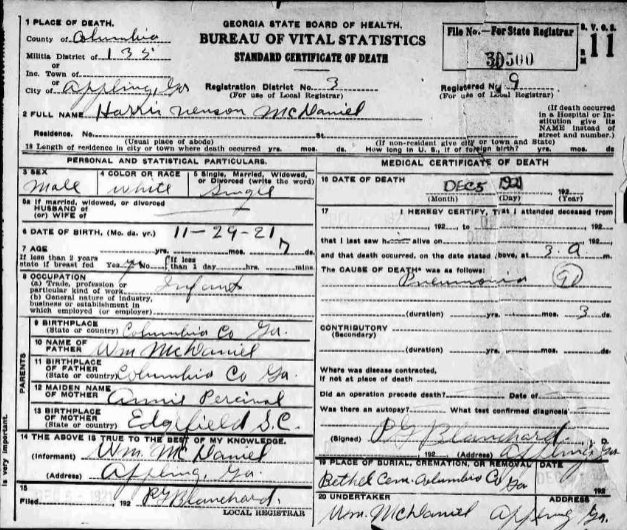 1 PLACE OF DEATH.
County of Columbia
Militia District of 135
or
Inc. Town of
or
City of Appling, Ga
GEORGIA STATE BOARD OF HEALTH.
BUREAU OF VITAL STATISTICS
STANDARD CERTIFICATE OF DEATH
Registration District No. 3
(For use of Local Registrar)
File No.—For State Registrar
30500
Registered No. 9
(For use of Local Registrar)
B. V. S.
11
2 FULL NAME Harris Venson McDaniel
(If death occurred in a Hospital or Institution give its NAME instead of street and number.)
Residence. No. St.
(Usual place of abode) (If non-resident give city or town and State)
18 Length of residence in city or town where death occurred yrs. mos. ds. How long in U. S., if of foreign birth? yrs. mos. ds.
PERSONAL AND STATISTICAL PARTICULARS.
3 SEX
Male
4 COLOR OR RACE
White
5 Single, Married, Widowed, or Divorced (write the word)
Single
5a If married, widowed, or divorced
HUSBAND of
(or) WIFE of
6 DATE OF BIRTH, (Mo. da. yr.) 11-29-21
7 AGE yrs. mos. 7 ds.
If less than 2 years state if breast fed Yes No
If less than 1 day hrs. mins.
8 OCCUPATION
(a) Trade, profession or particular kind of work.
Infant
(b) General nature of industry, business or establishment in which employed (or employer)
PARENTS
9 BIRTHPLACE
(State or country) Columbia Co Ga.
10 NAME OF FATHER Wm McDaniel
11 BIRTHPLACE OF FATHER
(State or country) Columbia Co Ga.
12 MAIDEN NAME OF MOTHER Annie Percival
13 BIRTHPLACE OF MOTHER
(State or country) Edgefield S.C.
14 THE ABOVE IS TRUE TO THE BEST OF MY KNOWLEDGE.
(Informant) Wm. McDaniel
(Address) Appling, Ga
15
Filed, 192 P G Blanchard,
LOCAL REGISTRAR
MEDICAL CERTIFICATE OF DEATH
16 DATE OF DEATH DEC 5 1921 192
(Month) (Day) (Year)
17 I HEREBY CERTIFY, That I attended deceased from
192 , to 192
that I last saw h alive on 192
and that death occurred, on the date stated above, at 3 a m.
The CAUSE OF DEATH* was as follows:
Pneumonia
(duration) yrs. mos. 3 ds.
CONTRIBUTORY
(Secondary)
(duration) yrs. mos. ds.
Where was disease contracted,
if not at place of death
Did an operation precede death? Date of
Was there an autopsy? What test confirmed diagnosis
(Signed) P G Blanchard
192 (Address) Appling Ga
19 PLACE OF BURIAL, CREMATION, OR REMOVAL
Bethel Cem. Columbia Co Ga
DATE
DEC
192
20 UNDERTAKER
Wm. McDaniel
ADDRESS
Appling Ga.
is very important.